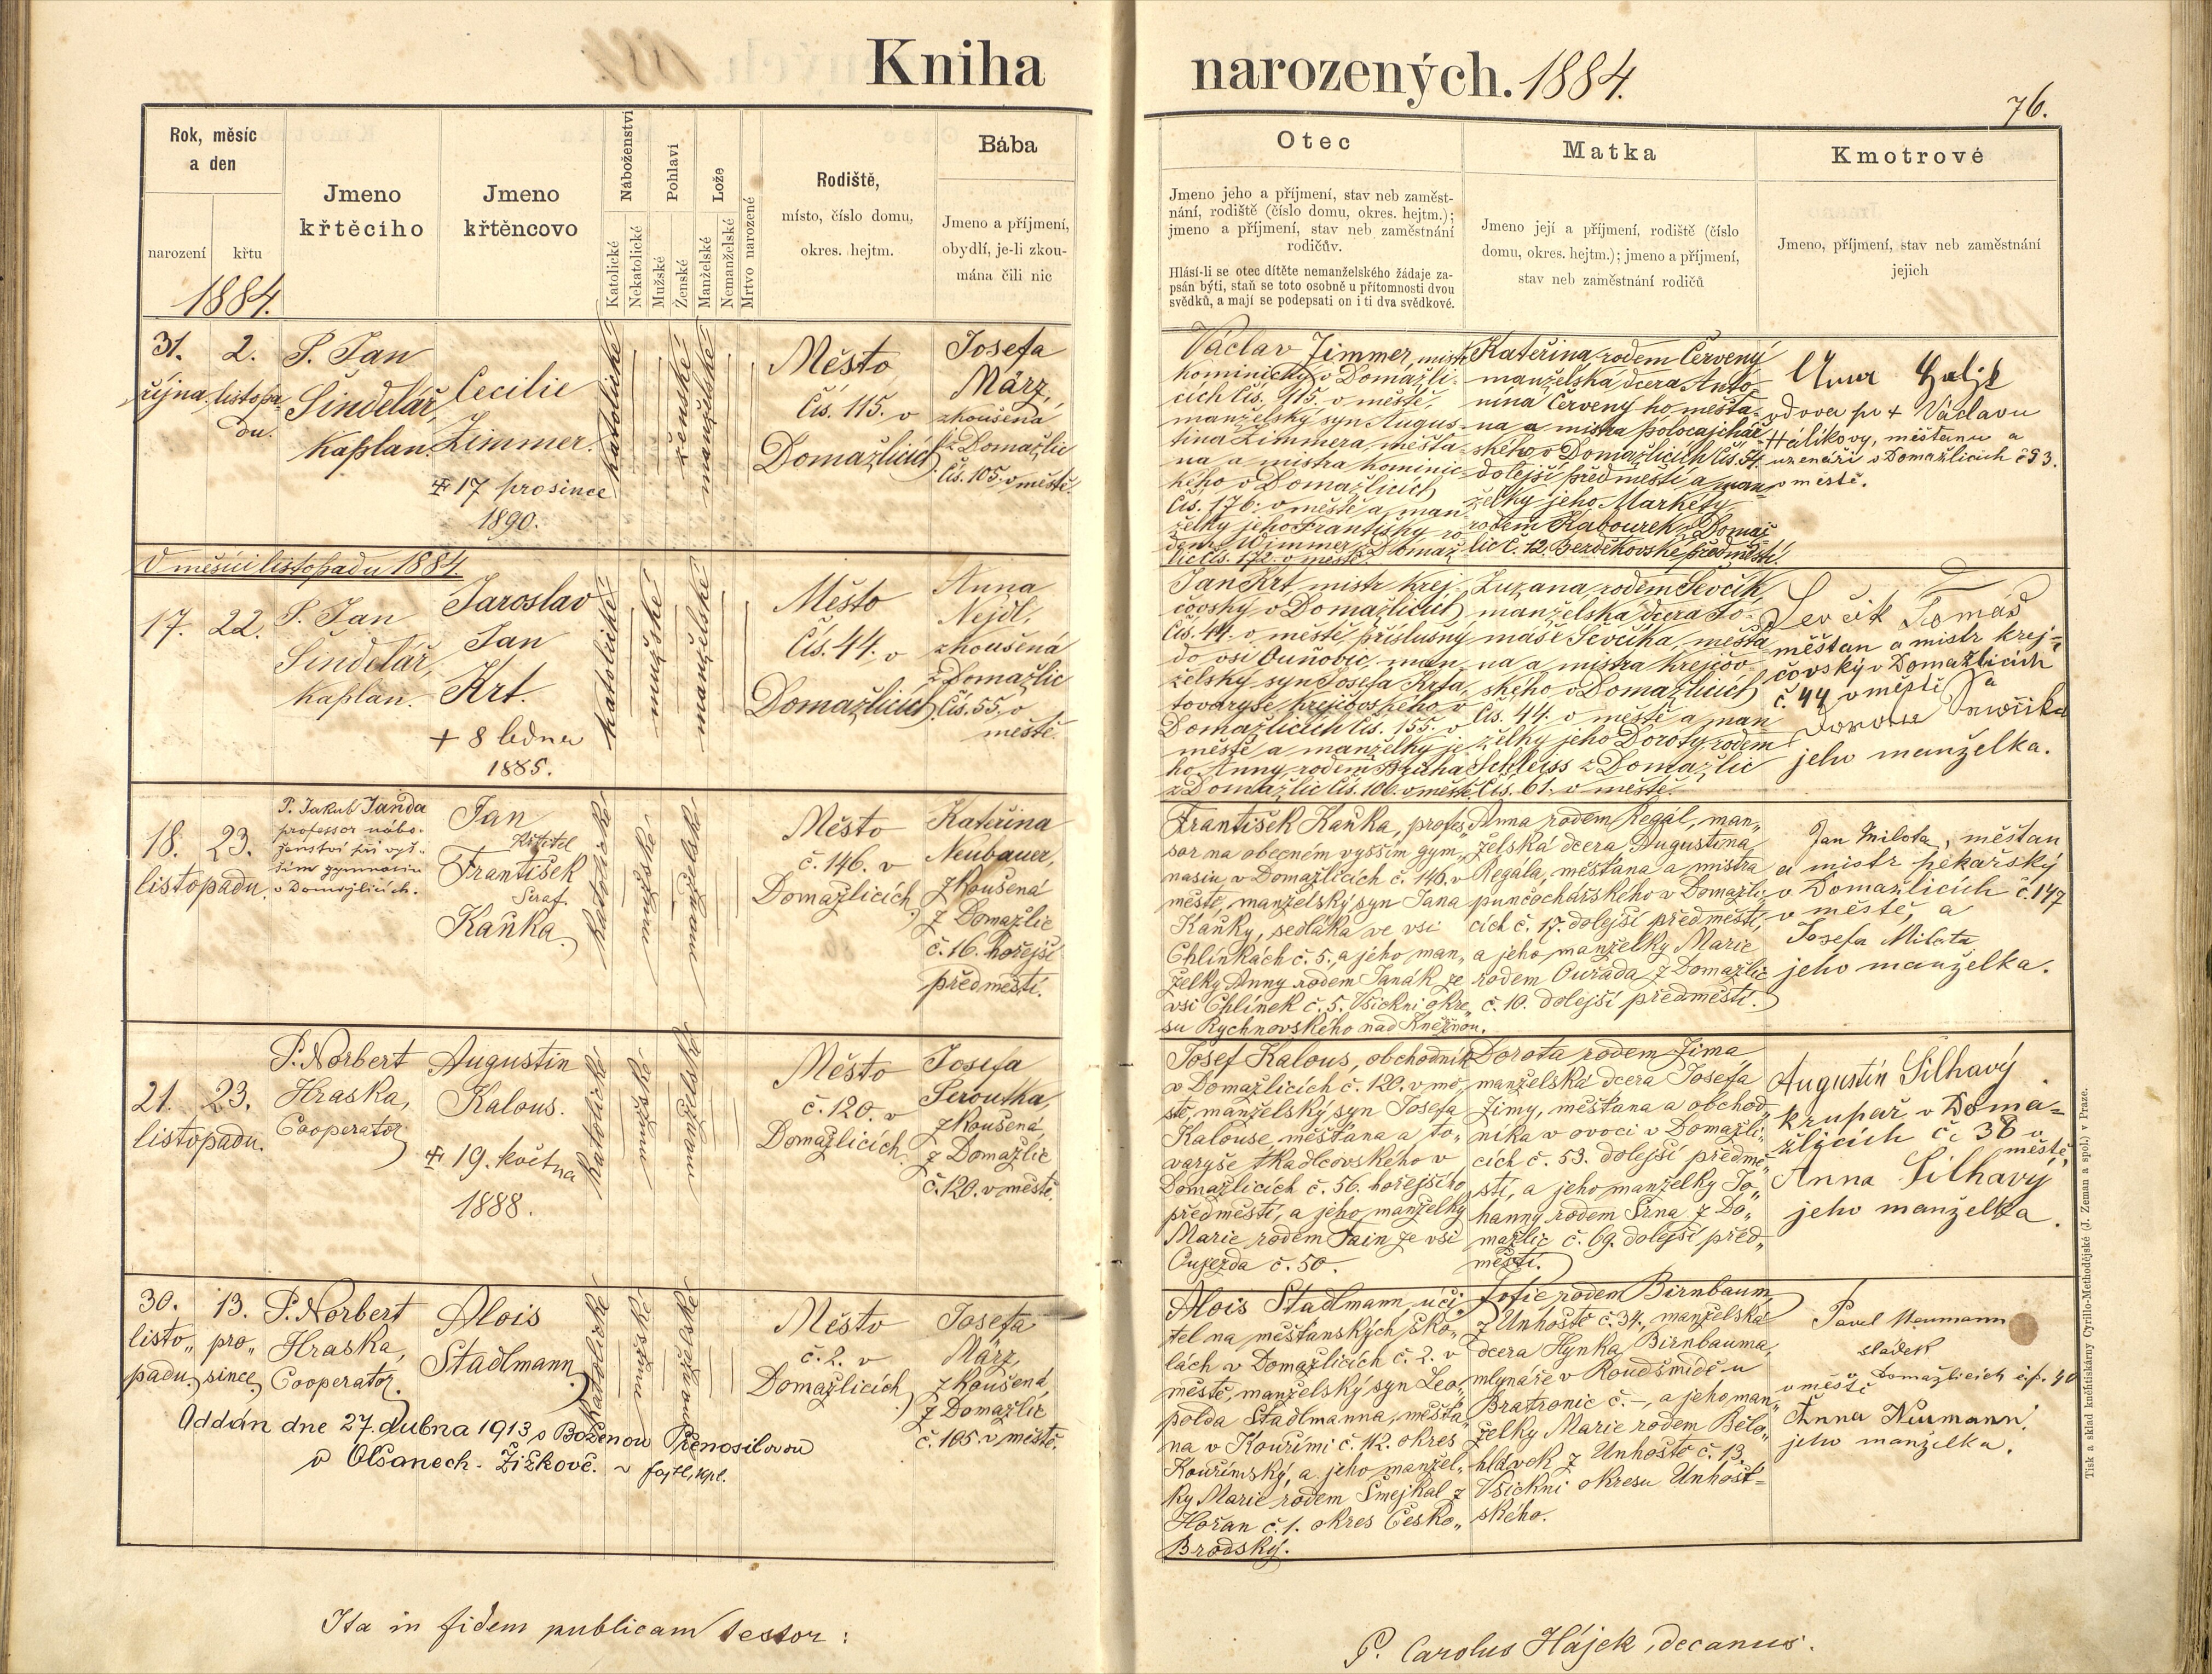 Kniha
narozených. 1884.
76.
Rok, měsíc
a den
narození
křtu
1884.
Jmeno
křtěcího
Jmeno
křtěncovo
Náboženství
Katolické
Nekatolické
Pohlaví
Mužské
Ženské
Lože
Manželské
Nemanželské
Mrtvo narozené
Rodiště,
místo, číslo domu,
okres. hejtm.
Bába
Jmeno a příjmení,
obydlí, je-li zkou-
mána čili nic
Otec
Jmeno jeho a příjmení, stav neb zaměst-
nání, rodiště (číslo domu, okres. hejtm.);
jmeno a příjmení, stav neb zaměstnání
rodičův.
Hlásí-li se otec dítěte nemanželského žádaje za-
psán býti, staň se toto osobně u přítomnosti dvou
svědků, a mají se podepsati on i ti dva svědkové.
Matka
Jmeno její a příjmení, rodiště (číslo
domu, okres. hejtm.); jmeno a příjmení,
stav neb zaměstnání rodičů
Kmotrové
Jmeno, příjmení, stav neb zaměstnání
jejich
31.
října
2.
listopa-
du.
P. Jan
Šindelář,
kaplan.
Cecilie
Zimmer.
17 prosince
1890.
katolické
ženské
manželské
Město
čís. 115. v
Domažlicích
Josefa
März,
zkoušená
z Domažlic
čís. 105. v městě.
Václav Zimmer, mistr
kominický v Domažli-
cích čís. 115. v městě,
manželský syn Augus-
tina Zimmera, měšťa-
na a mistra kominic-
kého v Domažlicích
čís. 176. v městě a man-
želky jeho Františky ro-
dem Wimmer z Domaž-
lic čís. 172. v městě.
Kateřina rodem Červený
manželská dcera Anto-
nína Červeného měšťa-
na a mistra
ského v Domažlicích čís. 54.
dolejší předměstí a man-
želky jeho Markéty
rodem Kabourek z Domaž-
lic č. 12. Bezděkovské předměstí.
vdova po + Václavu
Hálíkovy, měštanu a
uzenáři v Domažlicích č 93.
v městě.
V měsíci listopadu 1884.
17.
22.
P. Jan
Šindelář,
kaplan.
Jaroslav
Jan
Krt.
+ 8 ledna
1885.
katolické
mužské
manželské
Město
čís. 44. v
Domažlicích
Anna
Nejdl,
zkoušená
z Domažlic
čís. 55. v
městě.
Jan Krt mistr krej-
čovský v Domažlicích
čís. 44. v městě příslušný
do vsi Ouňovic, man-
želský syn Josefa Krta,
tovaryše krejčovského v
Domažlicích čís. 155. v
městě a manželky je-
ho Anny rodem Bruha
z Domažlic čís. 106. v městě.
Zuzana rodem Ševčík,
manželská dcera To-
máše Ševčíka, měšťa-
na a mistra krejčov-
ského v Domažlicích
čís. 44. v městě a man-
želky jeho Doroty rodem
Schleiss z Domažlic
čís. 61. v městě.
Sevčik Tomáš
měštan a mistr krej-
čovský v Domažlicích
č. 44 v městě a
jeho manželka.
18.
23.
listopadu.
P. Jakub Janda
professor nábo-
ženství při vyš-
ším gymnasiu
v Domažlicích.
Jan
Křtitel
František
Seraf.
Kaňka.
katolické
mužské
manželské
Město
č. 146. v
Domažlicích
Kateřina
Neubauer,
zkoušená
z Domažlic
č. 16. hořejší
předměstí.
František Kaňka, profes-
sor na obecném vyšším gym-
nasiu v Domažlicích č. 146. v
městě, manželský syn Jana
Kaňky, sedláka ve vsi
Chlínkách č. 5., a jeho man-
želky Anny rodem Janák ze
vsi Chlínek č. 5. Všickni okre-
su Rychnovského nad Kněžnou.
Anna rodem Regál, man-
želská dcera Augustina
Regála, měšťana a mistra
punčochářského v Domažli-
cích č. 17. dolejší předměstí,
a jeho manželky Marie
rodem Ouřada z Domažlic
č. 10. dolejší předměstí.
Jan Milota, měštan
a mistr pekařský
v Domažlicích č. 147
v městě, a
Josefa Milota
jeho manželka.
21.
23.
listopadu.
P. Norbert
Hraska,
Cooperator
Augustin
Kalous.
19. května
1888.
katolické
mužské
manželské
Město
č. 120. v
Domažlicích.
Josefa
Peroutka,
zkoušená
z Domažlic
č. 120. v městě.
Josef Kalous, obchodník
v Domažlicích č. 120. v mě-
stě, manželský syn Josefa
Kalouse, měšťana a to-
varyše tkadlcovského v
Domažlicích č. 56. hořejšího
předměstí, a jeho manželky
Marie rodem Fain ze vsi
Oujezda č. 50.
Dorota rodem Zima,
manželská dcera Josefa
Zimy, měšťana a obchod-
níka v ovoci v Domažli-
cích č. 53. dolejší předmě-
stí, a jeho manželky Jo-
hanny rodem Srna z Do-
mažlic č. 69. dolejší před-
městí.
Augustin Šilhavý
krupař v Doma-
žlicích č. 38 v
městě,
Anna Šilhavý
jeho manželka.
30.
listo-
padu.
13.
pro-
since.
P. Norbert
Hraska,
Cooperator.
Alois
Stadlmann.
katolické
mužské
manželské
Město
č. 2. v
Domažlicích
Josefa
März,
zkoušená
z Domažlic
č. 105. v městě.
Oddán dne 27. dubna 1913 s Boženou Přenosilovou
v Olšanech - Žižkově.
Alois Stadlmann, uči-
tel na měšťanských ško-
lách v Domažlicích č. 2. v
městě, manželský syn Leo-
polda Stadlmanna, měšťa-
na v Kouřimi č. 112. okres
Kouřimský, a jeho manžel-
ky Marie rodem Šmejkal z
Hořan č. 1. okres Česko-
Brodský.
Žofie rodem Birnbaum
z Unhoště č. 34., manželská
dcera Hynka Birnbauma,
mlynáře v Roudšmídě u
Bratronic č. –, a jeho man-
želky Marie rodem Bělo-
hlávek z Unhoště č. 13.
Všickni okresu Unhošť-
ského.
Pavel Neumann
sládek
v Domažlicích čp. 40
v městě
Anna Neumann
jeho manželka.
Tisk a sklad knihtiskárny Cyrillo-Methodějské (J. Zeman a spol.) v Praze.
Ita in fidem publicam testor:
P. Carolus Hájek, decanus.